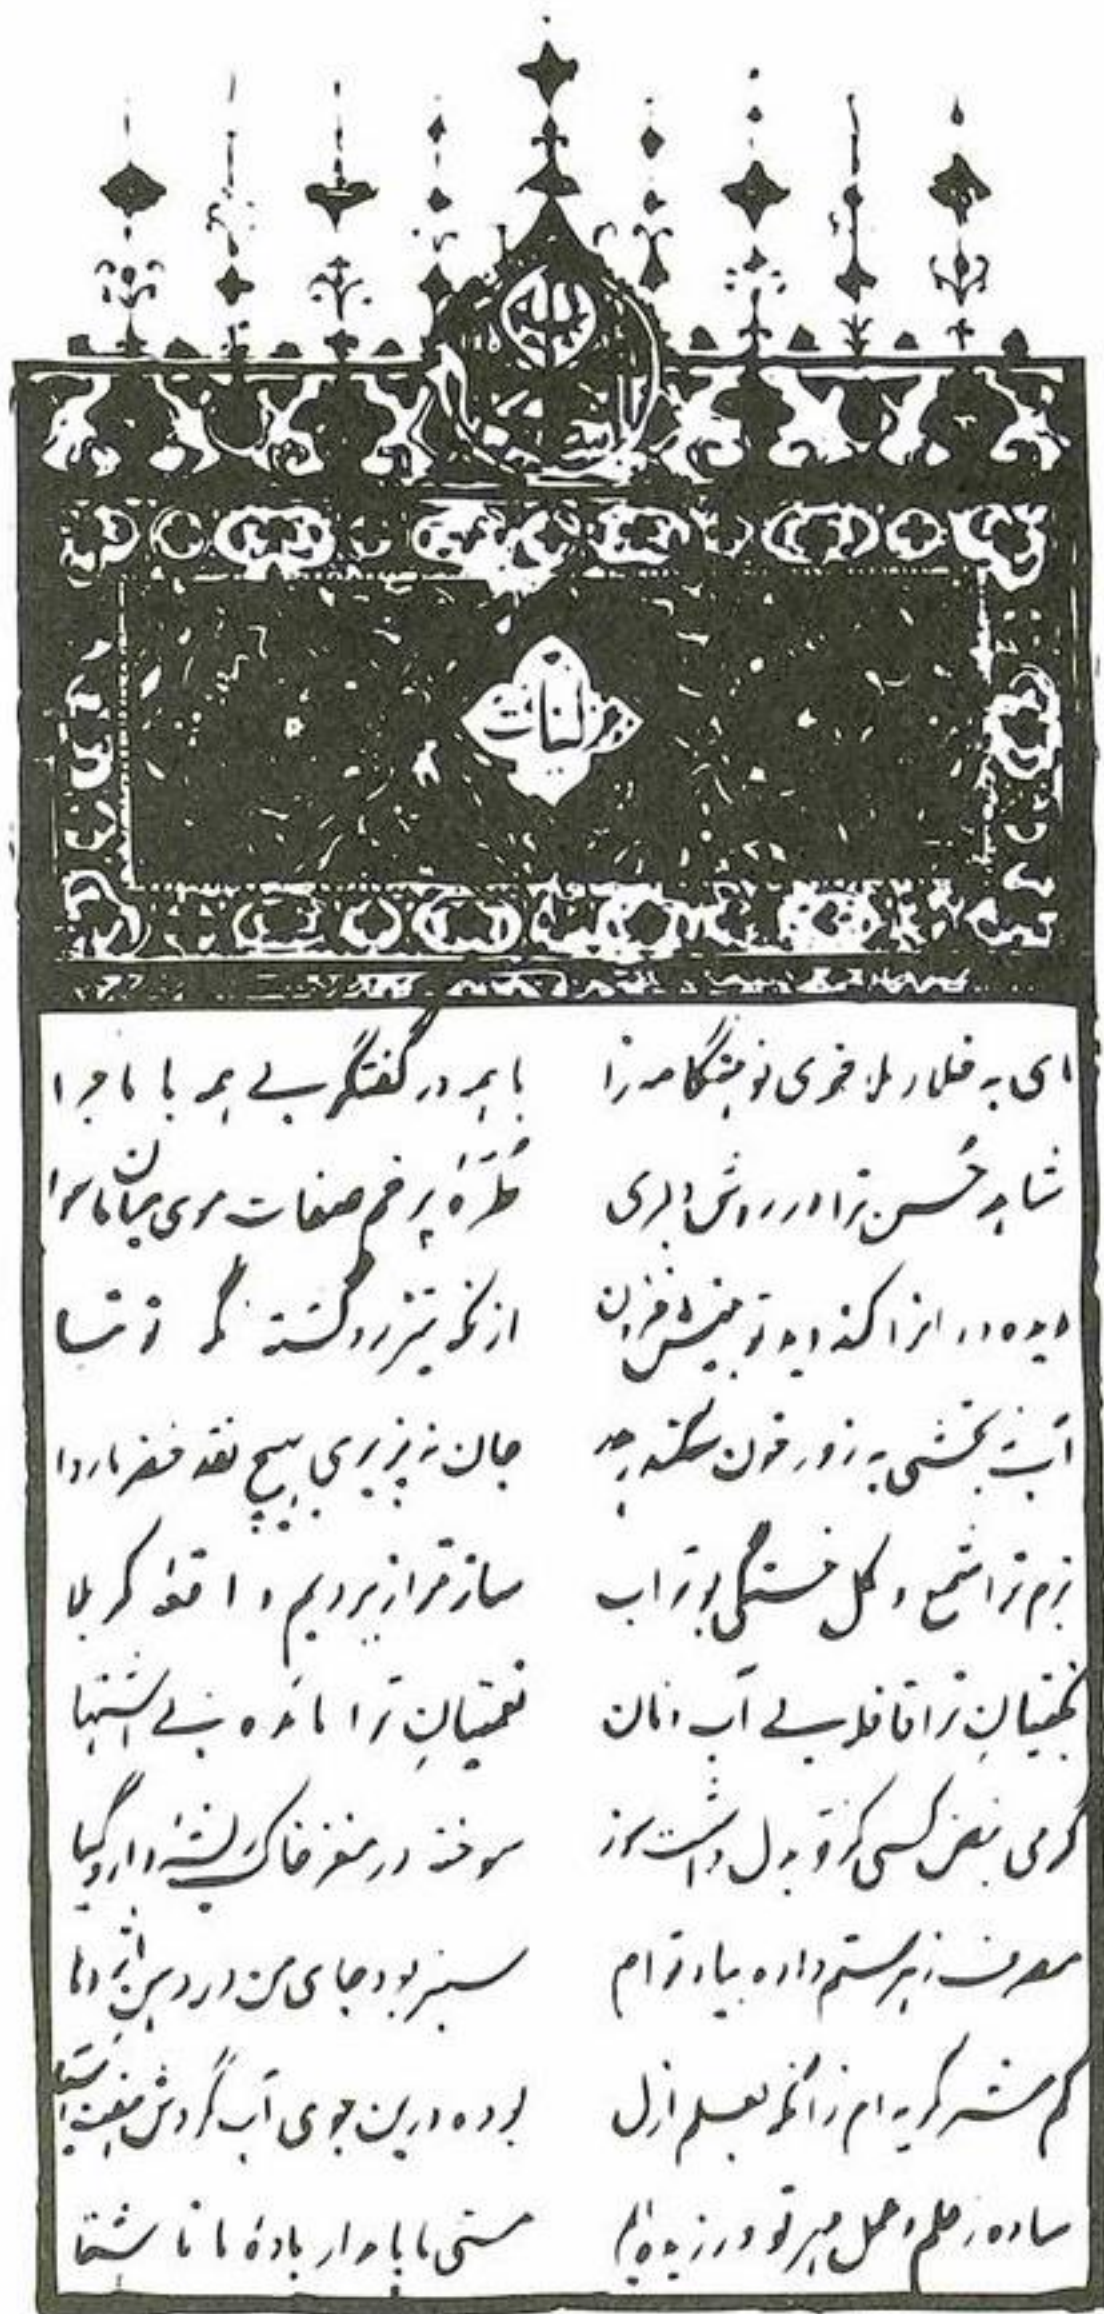 غزلیات
ای به خلا و ملا خوی تو هنگامه زا با همه در گفتگو بے همه با ماجرا
شاہدِ حُسن ترا در روش دلبری طُرّهٔ پر خم صفات موی میان ماسوا
دیده وران را کند دید تو بینش فزون از نگه تیزرو گشته نگه توتیا
آب نه بخشی به زور خون سکندر هدر جان نه پذیری به هیچ نقد خضر ناروا
بزم ترا شمع و گل خستگی بوتراب ساز ترا زیر و بم واقعهٔ کربلا
نکبتیانِ ترا قافله بے آب و نان نعمتیانِ ترا مائده بے اشتها
گرمی نبض کسی کز تو بدل داشت سوز سوخته در مغز خاک ریشهٔ دارو گیا
مصرف زهر ستم داده بیاد تو ام سبز بود جای من در دهن اژدها
کم مشمر گریه ام زانکه بعلم ازل بوده درین جوی آب گردش هفت آسیا
ساده ز علم و عمل مهر تو ورزیده ایم مستی ما پایدار بادهٔ ما ناشتا